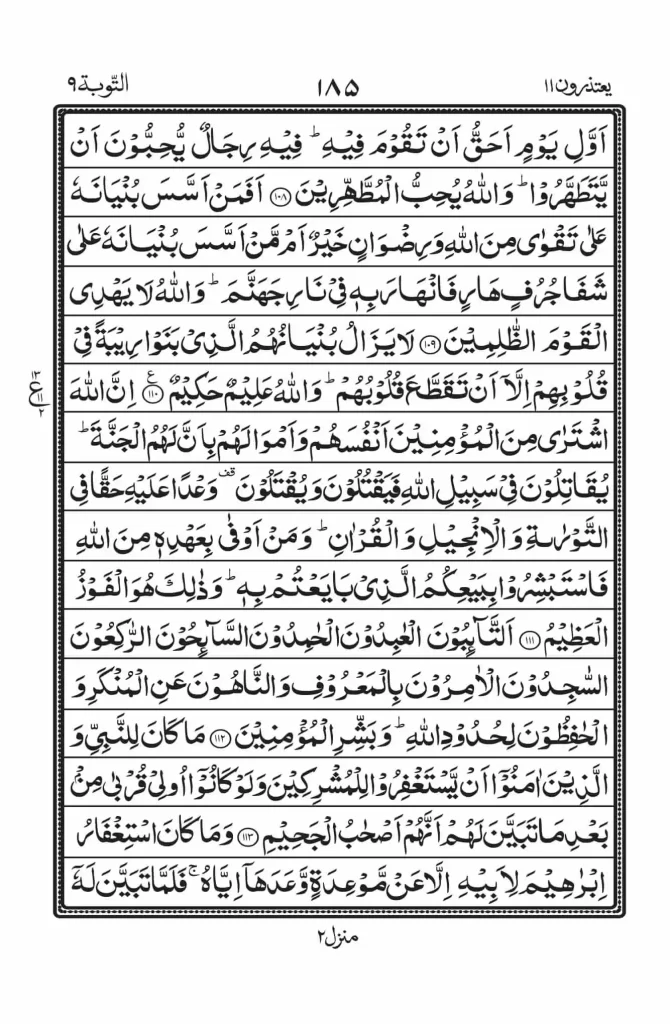 يعتذرون ۱۱ ۱۸۵ التّوبة ۹
اَوَّلِ يَوْمٍ اَحَقُّ اَنْ تَقُوْمَ فِيْهِ ؕ فِيْهِ رِجَالٌ يُّحِبُّوْنَ اَنْ
يَّتَطَهَّرُوْا ؕ وَاللّٰهُ يُحِبُّ الْمُطَّهِّرِيْنَ ۝۱۰۸ اَفَمَنْ اَسَّسَ بُنْيَانَهٗ
عَلٰى تَقْوٰى مِنَ اللّٰهِ وَرِضْوَانٍ خَيْرٌ اَمْ مَّنْ اَسَّسَ بُنْيَانَهٗ عَلٰى
شَفَا جُرُفٍ هَارٍ فَانْهَارَ بِهٖ فِىْ نَارِ جَهَنَّمَ ؕ وَاللّٰهُ لَا يَهْدِى
الْقَوْمَ الظّٰلِمِيْنَ ۝۱۰۹ لَا يَزَالُ بُنْيَانُهُمُ الَّذِىْ بَنَوْا رِيْبَةً فِىْ
قُلُوْبِهِمْ اِلَّاۤ اَنْ تَقَطَّعَ قُلُوْبُهُمْ ؕ وَاللّٰهُ عَلِيْمٌ حَكِيْمٌ ۝۱۱۰ ع اِنَّ اللّٰهَ
۱۳ ع ۱۱ ۲
اشْتَرٰى مِنَ الْمُؤْمِنِيْنَ اَنْفُسَهُمْ وَاَمْوَالَهُمْ بِاَنَّ لَهُمُ الْجَنَّةَ ؕ
يُقَاتِلُوْنَ فِىْ سَبِيْلِ اللّٰهِ فَيَقْتُلُوْنَ وَيُقْتَلُوْنَ قف وَعْدًا عَلَيْهِ حَقًّا فِى
التَّوْرٰىةِ وَالْاِنْجِيْلِ وَالْقُرْاٰنِ ؕ وَمَنْ اَوْفٰى بِعَهْدِهٖ مِنَ اللّٰهِ
فَاسْتَبْشِرُوْا بِبَيْعِكُمُ الَّذِىْ بَايَعْتُمْ بِهٖ ؕ وَذٰلِكَ هُوَ الْفَوْزُ
الْعَظِيْمُ ۝۱۱۱ اَلتَّآئِبُوْنَ الْعٰبِدُوْنَ الْحٰمِدُوْنَ السَّآئِحُوْنَ الرّٰكِعُوْنَ
السّٰجِدُوْنَ الْاٰمِرُوْنَ بِالْمَعْرُوْفِ وَالنَّاهُوْنَ عَنِ الْمُنْكَرِ وَ
الْحٰفِظُوْنَ لِحُدُوْدِ اللّٰهِ ؕ وَبَشِّرِ الْمُؤْمِنِيْنَ ۝۱۱۲ مَا كَانَ لِلنَّبِىِّ وَ
الَّذِيْنَ اٰمَنُوْۤا اَنْ يَّسْتَغْفِرُوْا لِلْمُشْرِكِيْنَ وَلَوْ كَانُوْۤا اُولِىْ قُرْبٰى مِنْۢ
بَعْدِ مَا تَبَيَّنَ لَهُمْ اَنَّهُمْ اَصْحٰبُ الْجَحِيْمِ ۝۱۱۳ وَمَا كَانَ اسْتِغْفَارُ
اِبْرٰهِيْمَ لِاَبِيْهِ اِلَّا عَنْ مَّوْعِدَةٍ وَّعَدَهَاۤ اِيَّاهُ ۚ فَلَمَّا تَبَيَّنَ لَهٗۤ
منزل ۲